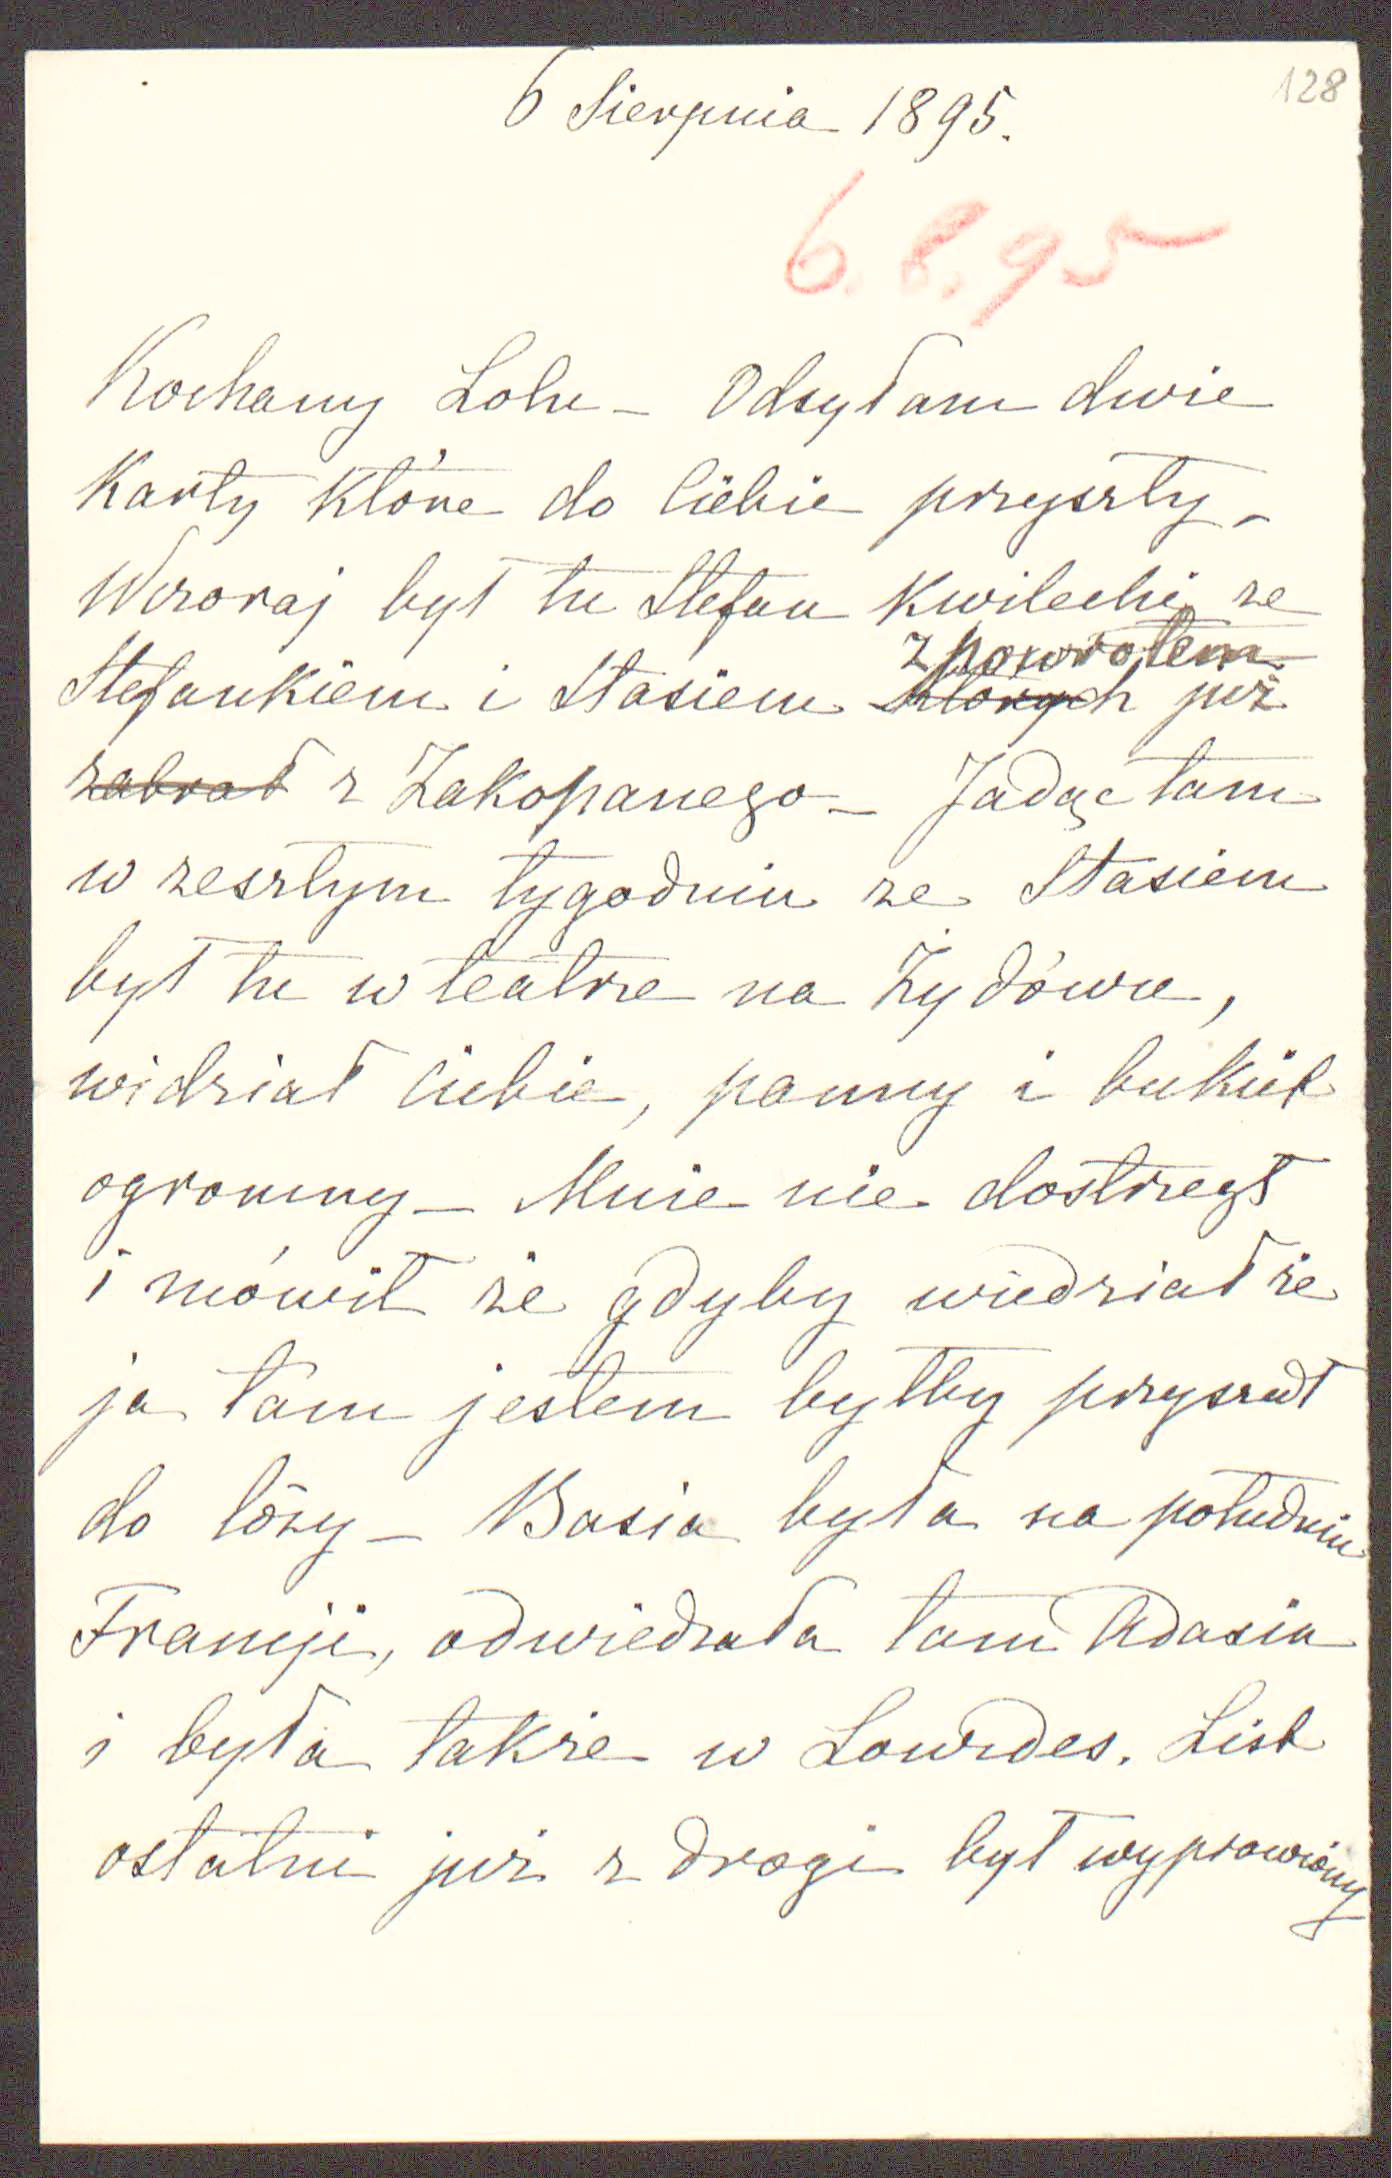 128
6 Sierpnia 1895.
6.8.95
Kochany Lolu – Odsyłam dwie
Karty które do Ciebie przyszły –
Wczoraj był tu Stefan Kwilecki ze
z powrotem
Stefankiem i Stasiem których już
zabrał z Zakopanego – Jadąc tam
w zeszłym tygodniu ze Stasiem
był tu w teatrze na Żydówce,
widział Ciebie, panny i bukiet
ogromny – Mnie nie dostrzegł
i mówił że gdyby wiedział że
ja tam jestem byłby przyszedł
do loży – Basia była na południu
Francji, odwiedzała tam Adasia
i była także w Lourdes. List
ostatni już z drogi był wyprawiony